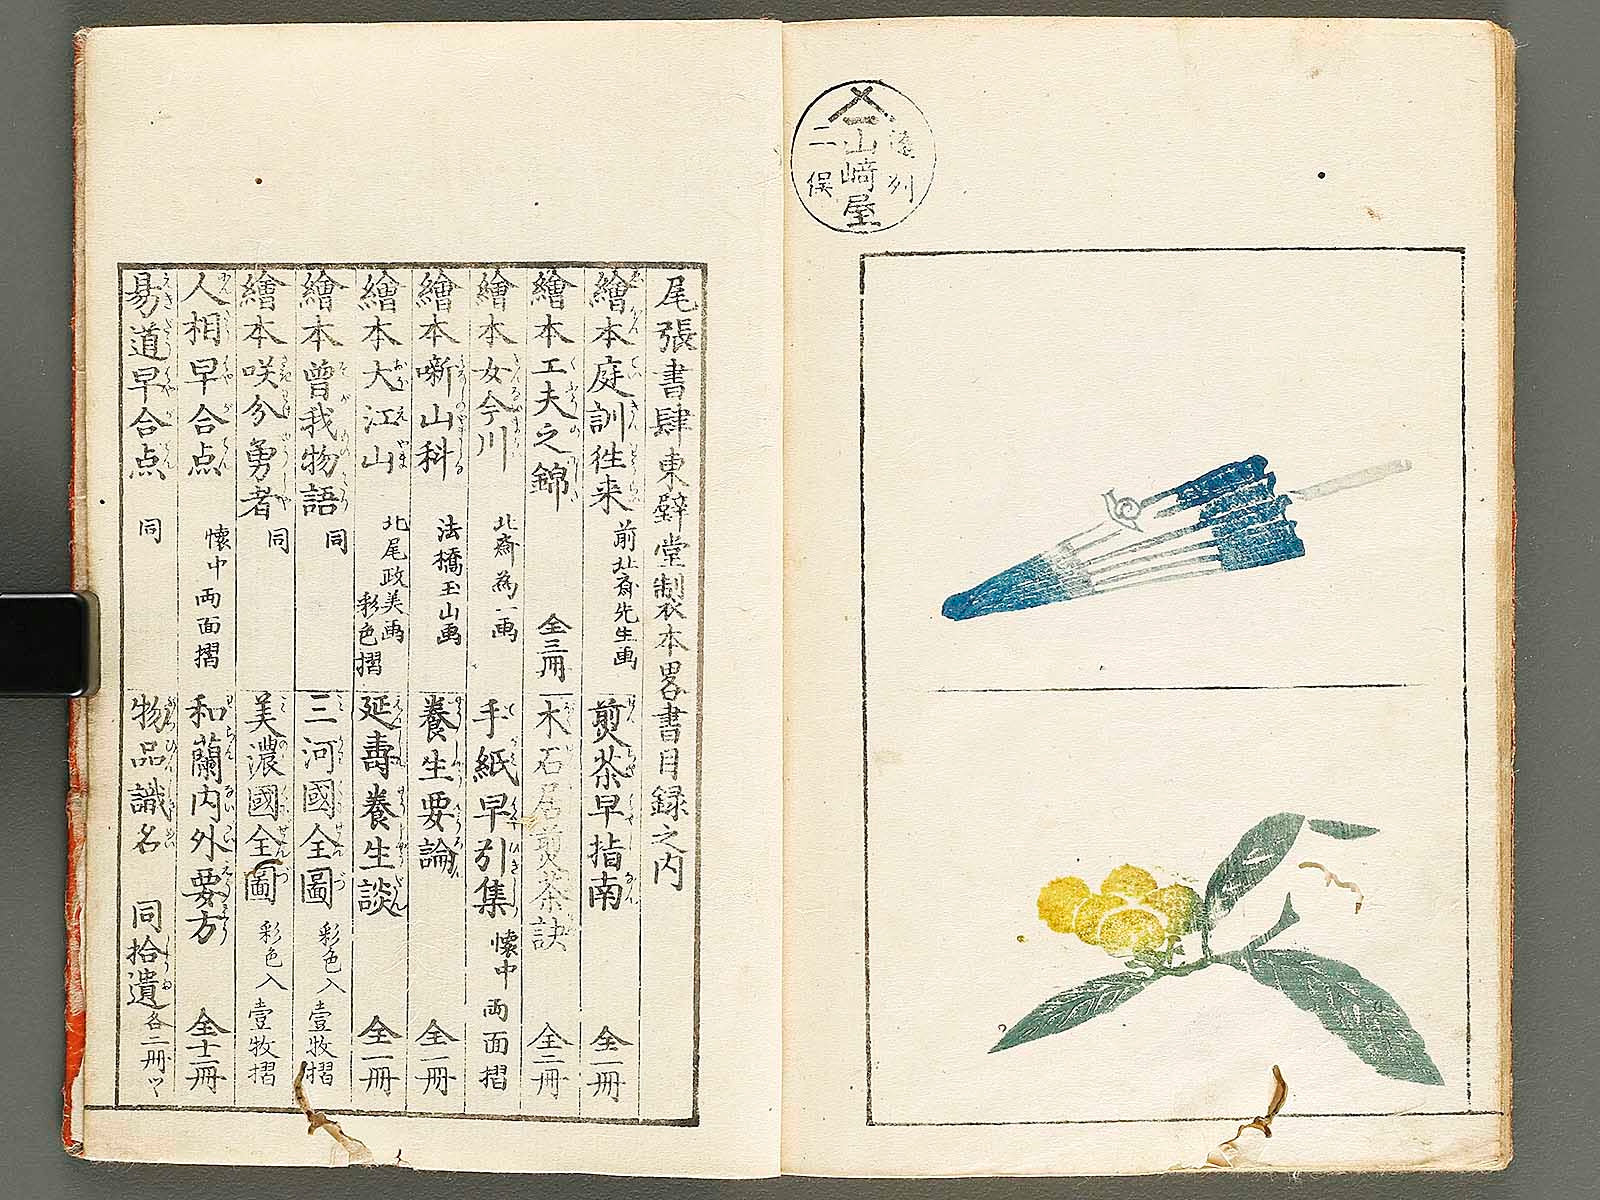 遠列
山嵜屋
二俣
尾張書肆東壁堂製本畧書目録之内
繪本庭訓徃来 前北斎先生画
煎茶早指南 全一冊
繪本工夫之錦 全三冊
木石居煎茶訣 全二冊
繪本女今川 北斎為一画
手紙早引集 懐中両面摺
繪本噺山科 法橋玉山画
養生要論 全一冊
繪本大江山 北尾政美画 彩色摺
延壽養生談 全一冊
繪本曽我物語 同
三河國全圖 彩色入 壹牧摺
繪本咲分勇者 同
美濃國全圖 彩色入 壹牧摺
人相早合点 懐中両面摺
和蘭内外要方 全十二冊
易道早合点 同
物品識名 同拾遺 各二冊ツヽ